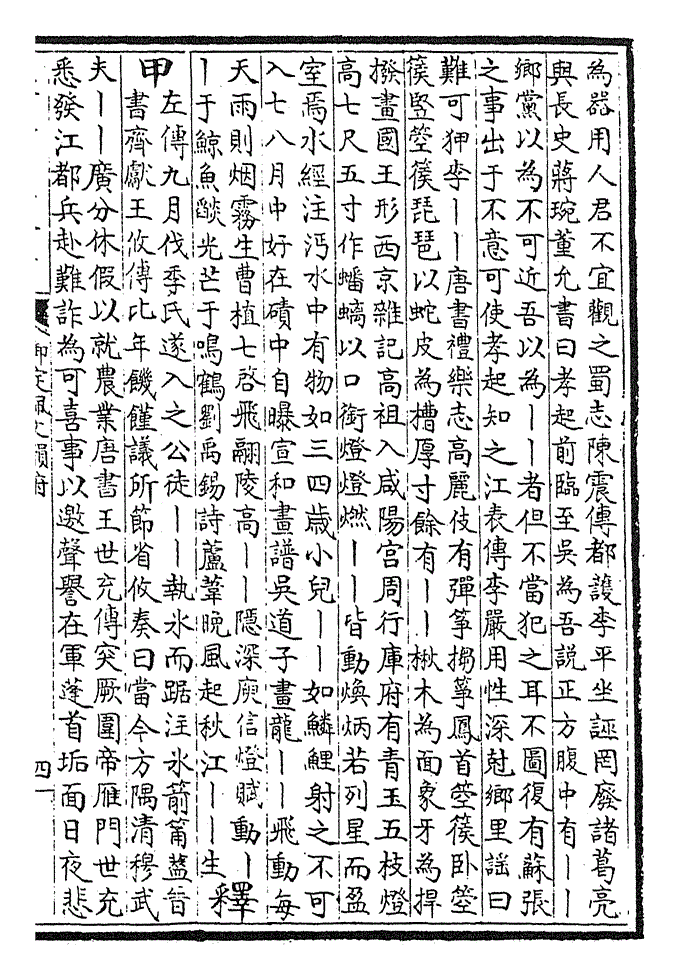 為器用人君不宜觀之蜀志陳震傳都護李平坐誣罔廢諸葛亮
與長史蔣琬董允書曰孝起前臨至吳為吾說正方腹中有丨丨
鄉黨以為不可近吾以為丨丨者但不當犯之耳不圖復有蘇張
之事出于不意可使孝起知之江表傳李嚴用性深尅鄉里謡曰
難可狎李丨丨唐書禮樂志高麗伎有彈箏搊箏鳳首箜篌卧箜
篌竪箜篌琵琶以蛇皮為槽厚寸餘有丨丨楸木為面象牙為捍
撥畫國王形西京雜記高祖入咸陽宫周行庫府有青玉五枝燈
高七尺五寸作蟠螭以口銜燈燈燃丨丨皆動煥炳若列星而盈
室焉水經注沔水中有物如三四歲小兒丨丨如鱗鯉射之不可
入七八月中好在磧中自曝宣和畫譜吳道子畫龍丨丨飛動每
天雨則烟霧生曹植七啓飛翮陵高丨丨隱深庾信燈賦動丨
丨于鯨魚燄光芒于鳴鶴劉禹錫詩蘆葦晚風起秋江丨丨生
釋甲
左傳九月伐季氏遂入之公徒丨丨執氷而踞注氷箭筩葢晉
書齊獻王攸傳比年饑饉議所節省攸奏曰當今方隅清穆武
夫丨丨廣分休假以就農業唐書王世充傳突厥圍帝雁門世充
悉發江都兵赴難詐為可喜事以邀聲譽在軍蓬首垢面日夜悲
御定佩文韻府
四